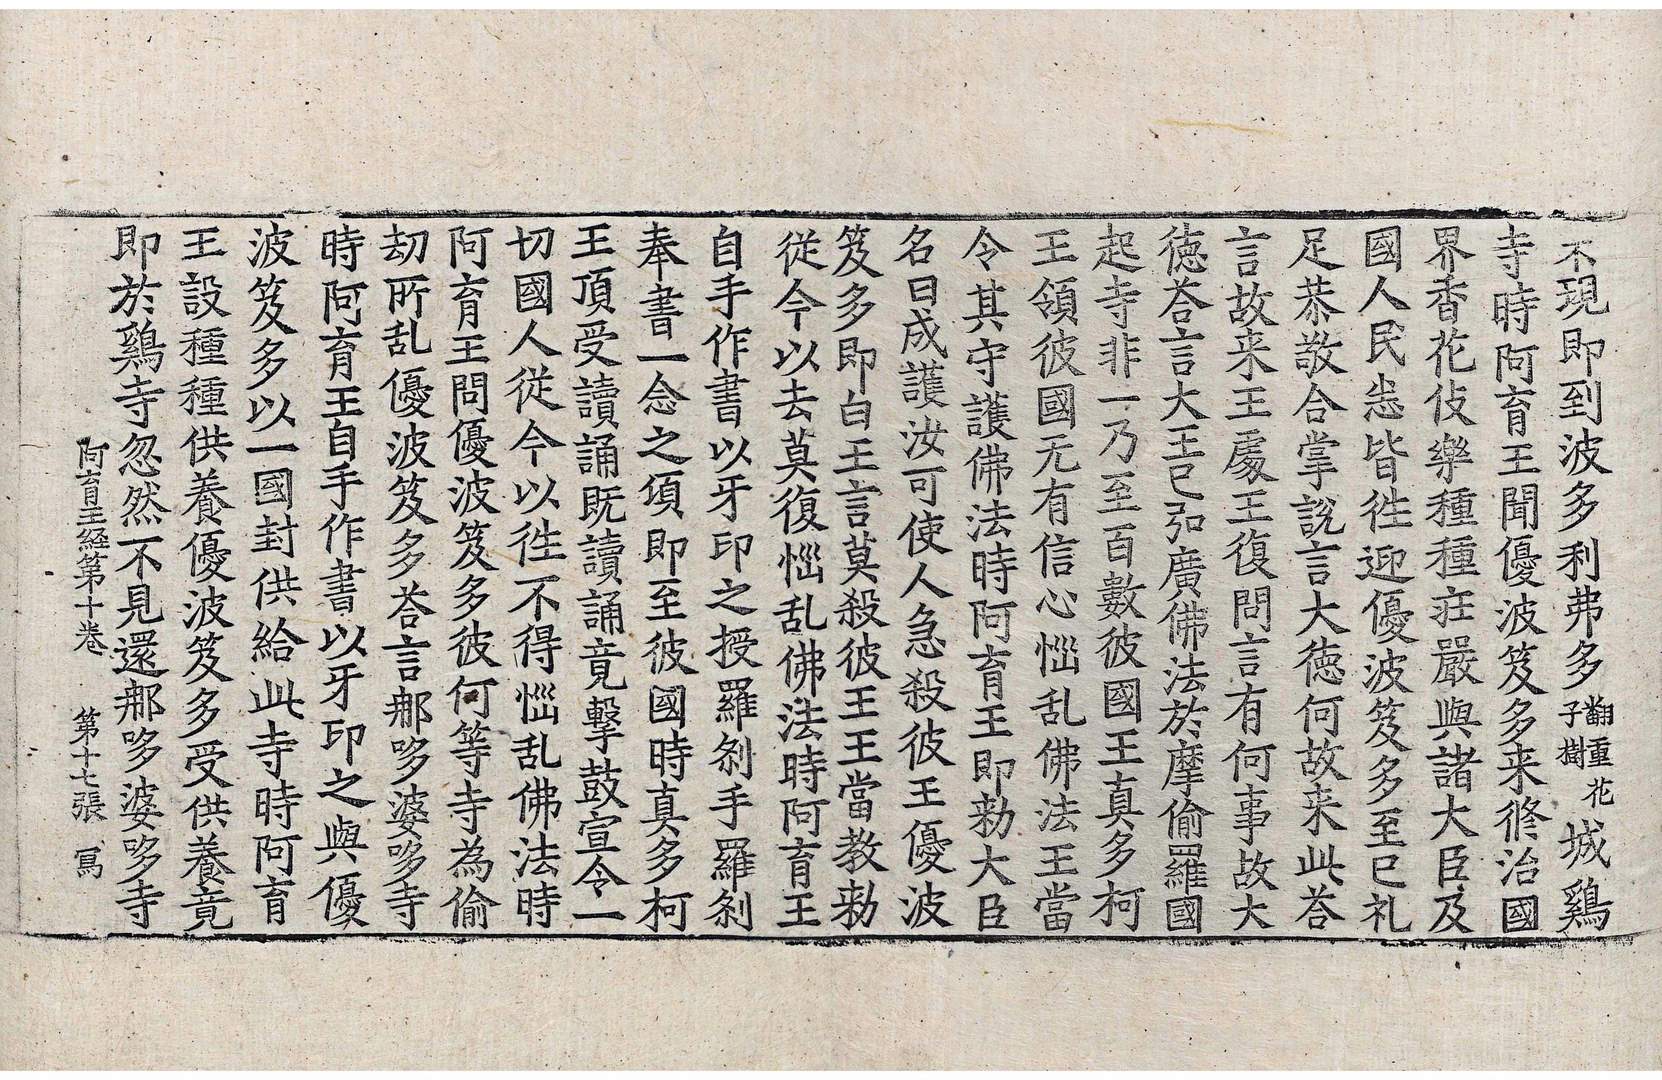 不現即到波多利弗多翻重花子樹城鷄
寺時阿育王聞優波笈多来脩治國
界香花伎樂種種疘嚴與諸大臣及
國人民悉皆徃迎優波笈多至已礼
足恭敬合掌說言大徳何故来此荅
言故来王䖏王復問言有何事故大
徳荅言大王已弘廣佛法於摩偷羅國
起寺非一乃至百數彼國王真多柯
王領彼國无有信心惱乱佛法王當
令其守護佛法時阿育王即勑大臣
名曰成護汝可使人急殺彼王優波
笈多即白王言莫殺彼王王當教勑
從今以去莫復惱乱佛法時阿育王
自手作書以牙印之授羅刹手羅刹
奉書一念之頃即至彼國時真多柯
王頂受讀誦既讀誦竟擊鼓宣令一
切國人從今以徃不得惱乱佛法時
阿育王問優波笈多彼何等寺為偷
刧所乱優波笈多荅言那哆婆哆寺
時阿育王自手作書以牙印之與優
波笈多以一國封供給此寺時阿育
王設種種供養優波笈多受供養竟
即於鷄寺忽然不見還那哆婆哆寺
阿育王經第十卷 第十七張 寫